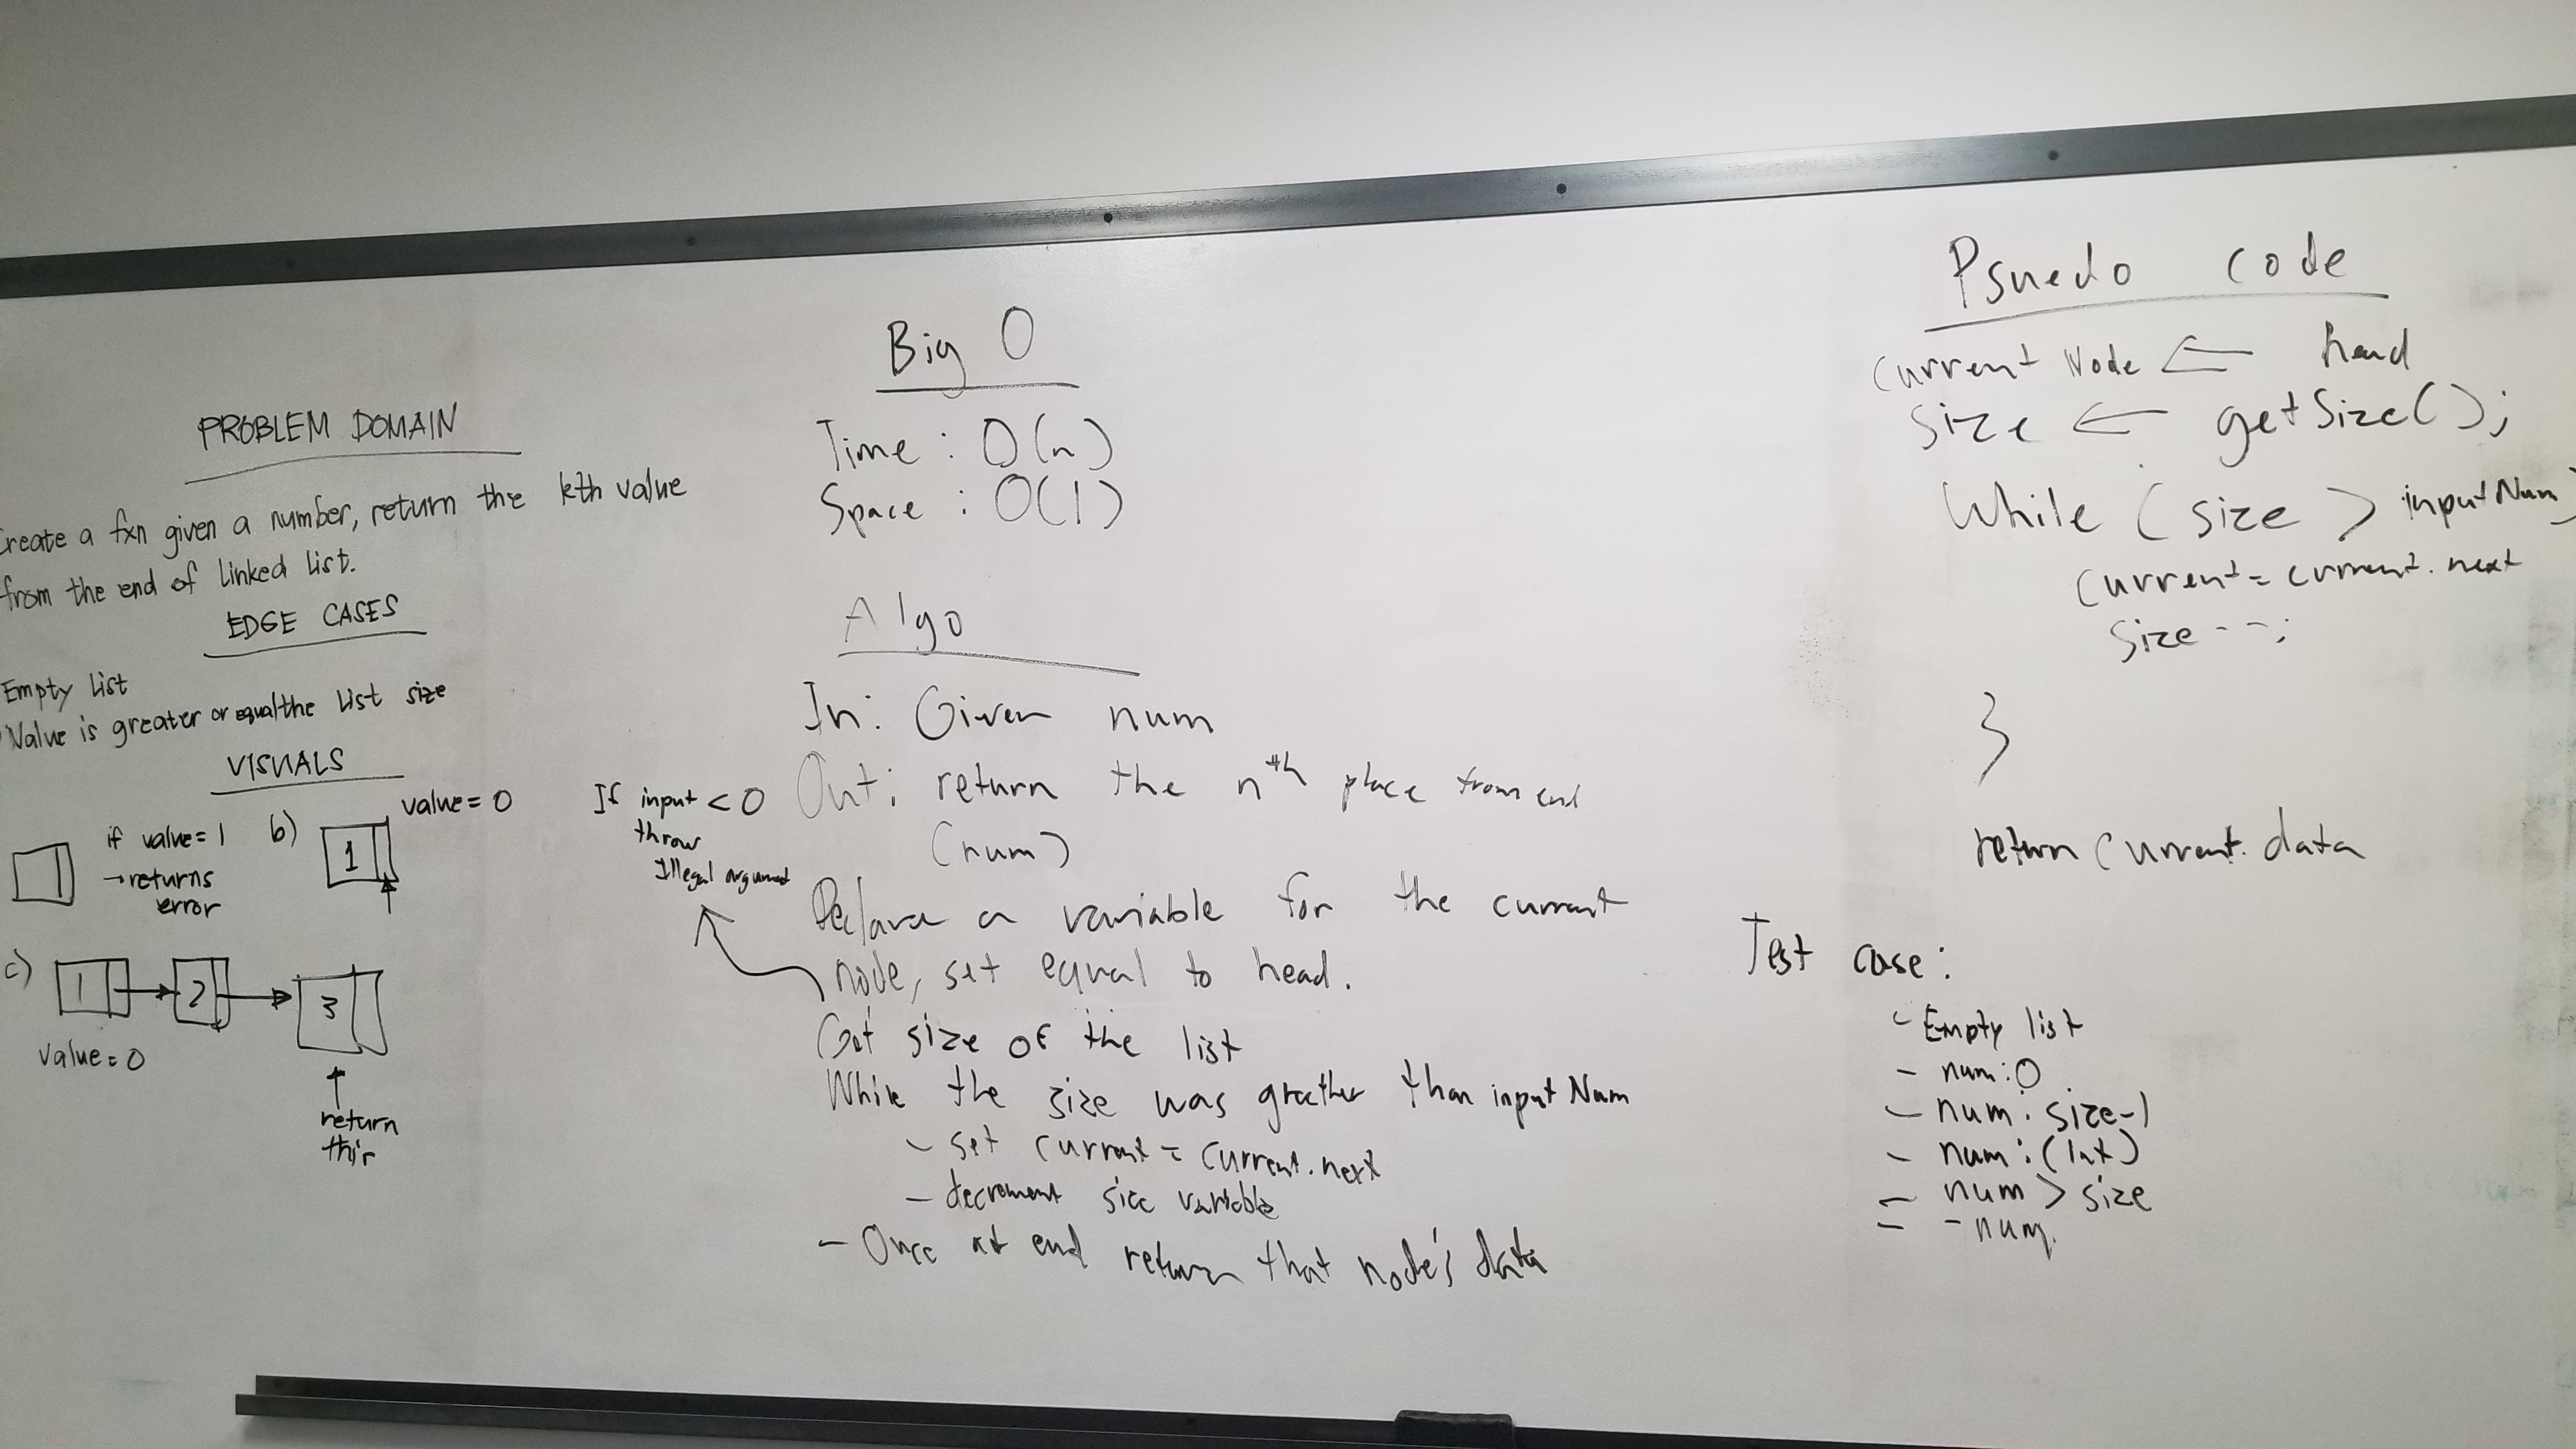 PROBLEM DOMAIN
Create a fxn given a number, return the kth value
from the end of linked list.
EDGE CASES
Empty list
Value is greater or equal the list size
VISUALS
if value = 1
→ returns
error
b)
1
value = 0
c)
1
2
3
value = 0
return
this
Big O
Time : O(n)
Space : O(1)
Algo
In: Given num
Out: return the nth place from end
(num)
If input < 0
throw
Illegal argument
Declare a variable for the current
node, set equal to head.
Get size of the list
While the size was greather than inputNum
- set current = current.next
- decrement size variable
- Once at end return that node's data
Psuedo code
Current Node ← head
Size ← getSize();
While ( size > inputNum)
Current = current.next
Size --;
}
return Current.data
Test case:
- Empty list
- num : 0
- num : size-1
- num : (Int)
- num > size
- -num.